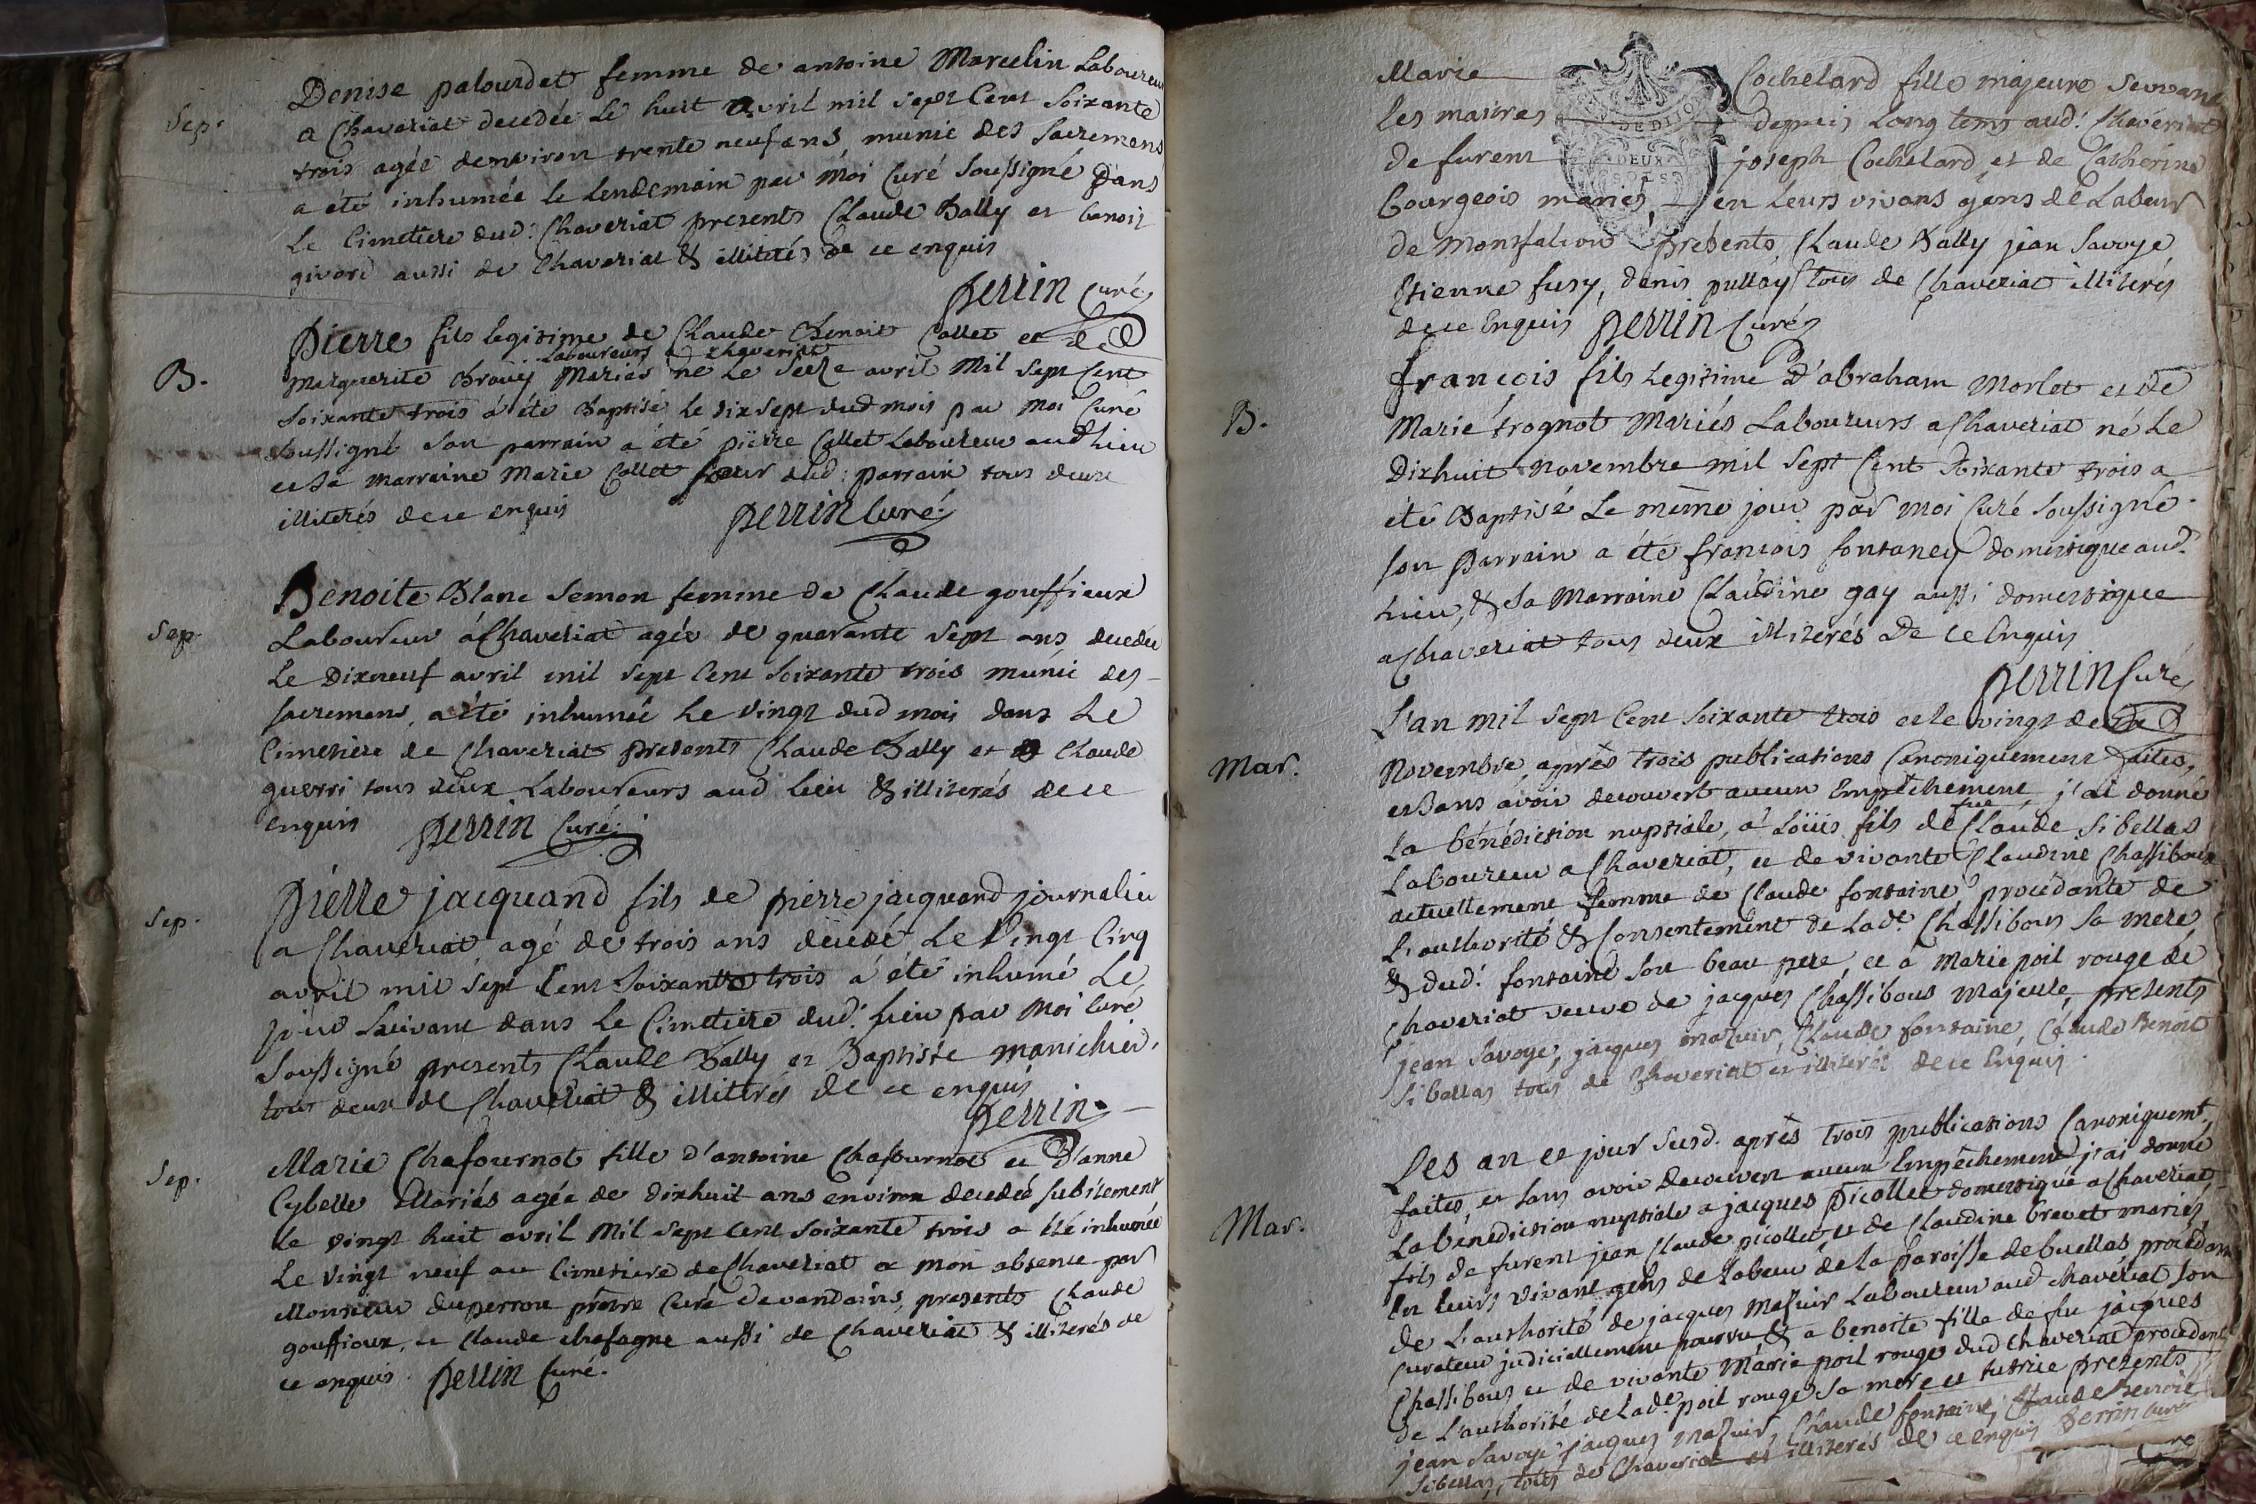 Sep.
Denise palourdet femme de antoine Marcelin Laboureur
a Chaveriat decedée le huit avril mil sept Cent soixante
trois agée denviron trente neuf ans, munie des sacremens
a été inhumée le lendemain par moi Curé soussigné dans
le Cimetiere dud: Chaveriat presents Claude Bally et benoit
givord aussi de Chaveriat & illiterés de ce enquis
perrin Curé
B.
Pierre fils legitime de Claude Benoit Collet et de
Laboureurs a chaveriat
Marguerite Mariés né le seize avril Mil sept Cent
soixante trois a été Baptisé le dix sept dud mois par moi Curé
soussigné son parrain a été pierre Collet Laboureur aud lieu
et sa marraine Marie Collet soeur dud: parrain tous deux
illiterés de ce enquis perrin Curé.
Sep.
Benoite Blanc semon femme de Claude gouffieux
Laboureur á Chaveriat agée de quarante sept ans decedée
le Dixneuf avril mil sept Cent soixante trois munie des
sacremens, a été inhumée le vingt dud mois dans le
Cimetiere de Chaveriat presents Claude Bally et Claude
guerri tous deux Laboureurs aud lieu & illiterés de ce
enquis perrin Curé.
Sep.
Pierre jacquand fils de pierre jacquand journalier
a Chaveriat, agé de trois ans decedé le vingt Cinq
avril mil sept Cent soixante trois a été inhumé le
jour suivant dans le Cimetiere dud. lieu par moi Curé
soussigné presents Claude Bally et Baptiste manichier,
tous deux de Chaveriat & illiterés de ce enquis
perrin.
Sep.
Marie Chafournot fille d'antoine Chafournot et D'anne
Cybelle Mariés agée de dixhuit ans environ decedée subitement
le vingt huit avril Mil sept cent soixante trois a été inhumée
le vingt neuf au Cimetiere de Chaveriat a mon absence par
Monsieur duperron prêtre Curé de vandains, presents Claude
gouffioux, et Claude chafagne aussi de Chaveriat & illiterés de
ce enquis. perrin Curé.
Marie Cochelard fille majeure servant
les maitres depuis long tems aud: Chaveriat
de furent joseph Cochelard et de Catherine
Bourgeois mariés, en leurs vivans gens de Labeur
DE DIJO
DEUX
SOLS
de Montfalcon presents Claude Bally jean savoye
Etienne fusy, denis pulloy tous de Chaveriat illiterés
de ce Enquis perrin Curé
B.
françois fils legitime D'abraham Morlot et de
Marie trognot Mariés Laboureurs a Chaveriat né le
Dixhuit novembre mil sept Cent soixante trois a
été Baptisé le même jour par moi Curé soussigné.
son Parrain a été françois fontaney domestique aud.
lieu, & sa Marraine Claudine gay aussi domestique
a Chaveriat tous deux illiterés de ce Enquis
perrin Curé
Mar.
L'an mil sept Cent soixante trois et le vingt
Novembre, après trois publications Canoniquement faites,
et sans avoir decouvert aucun Empêchement, j'ai donné
feu
la bénédiction nuptiale, a Loüis fils de Claude sibellas
Laboureur a Chaveriat, et de vivante Claudine Chassibous
actuellement femme de Claude fontaine procédante de
L'authorité & Consentement de Lade. Chassibous sa mere
& dud. fontaine son beau pere, et a Marie poil rouge de
Chaveriat veuve de jacques Chassibous majeure, presents
jean savoye, jacques mazuir, Claude fontaine, Claude Benoit
sibellas tous de Chaveriat et illiterés de ce Enquis.
Mar.
Les an et jour susd. après trois publications Canoniquemt.
faites, et sans avoir decouvert aucun Empêchement j'ai donné
La bénédiction nuptiale a jacques picollet domestique a Chaveriat,
fils de furent jean Claude picollet, et de Claudine brevet mariés,
En leurs vivant gens de labeur de la paroisse de buellas procédant
de l'authorité de jacques mazuir Laboureur aud Chaveriat son
curateur judiciellement pourvu & a benoite fille de feu jacques
Chassibous et de vivante Marie poil rouge dud Chaveriat procédant
de L'authorité de lade. poil rouge sa mere et tutrice presents
jean savoye jacques mazuir, Claude fontaine, Claude Benoit
sibellas, tous de Chaveriat et illiterés de ce enquis perrin Curé